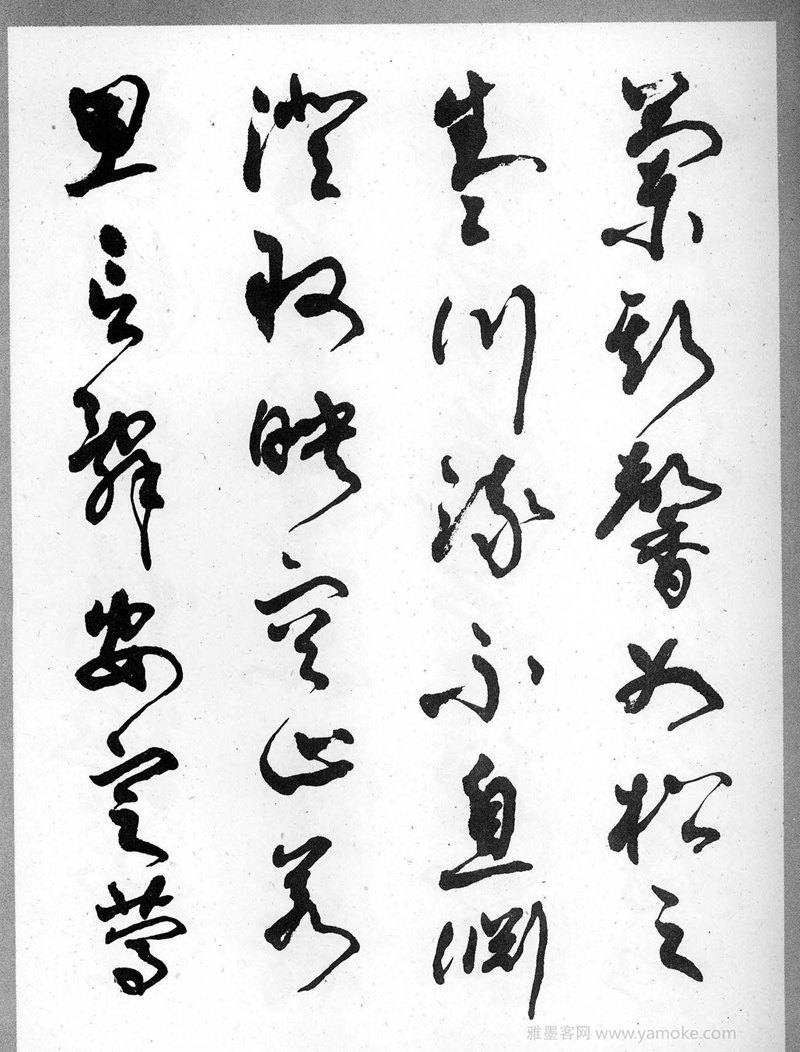 蘭斯馨如松之
盛川流不息淵
澄取映容止若
思言辭安定篤
雅墨客网 www.yamoke.com